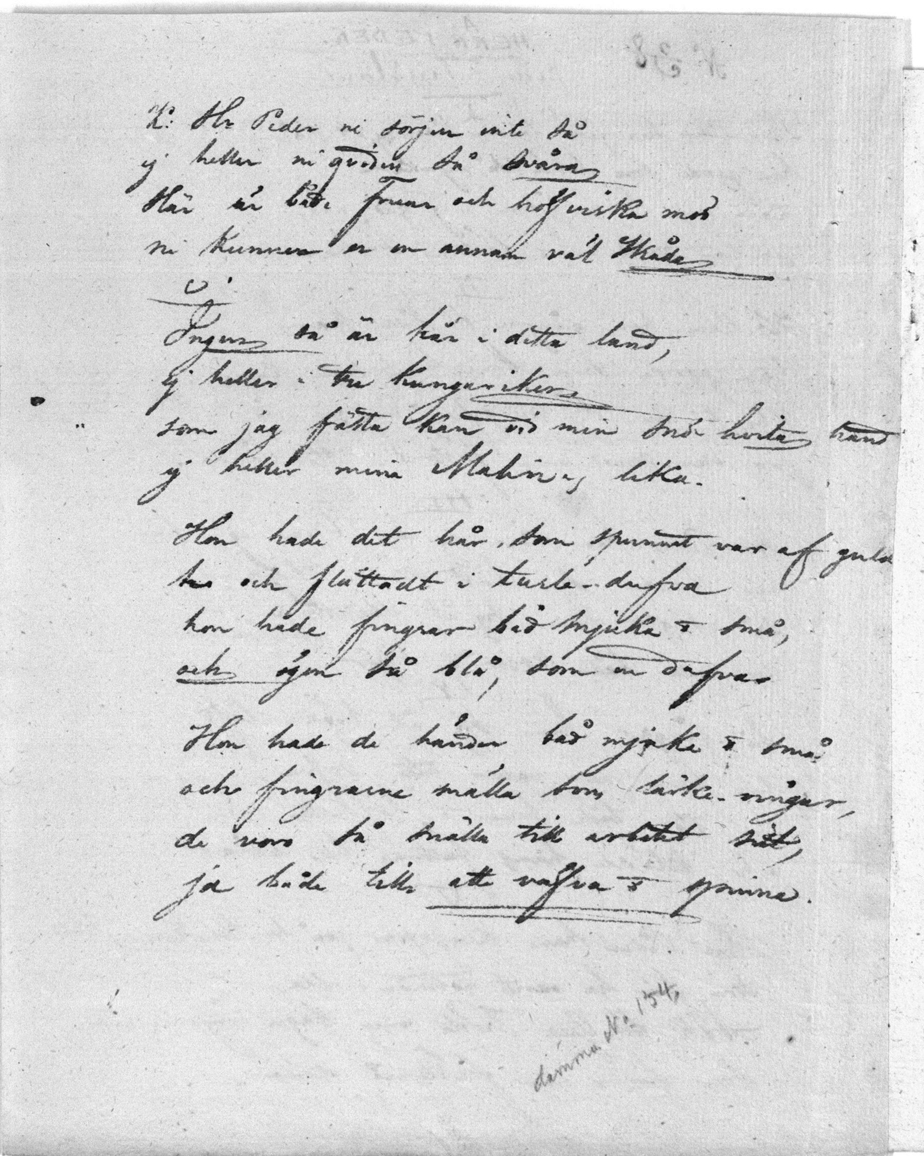 K: Hr Peder ni sörjen inte så
ej heller ni qviden så svåra
Här är både Fruar och höfviska mör
ni kunnen er en annan väl skåda
U:
Ingen så är här i detta land,
ej heller i tre kungariken
som jag fästa kan vid min snö hvita hand
ej heller mine Malin's lika.
Hon hade det hår, som spunnet var af guld
och flättadt i turle-dufva
hon hade fingrar båd mjuka & små,
och ögon så blå, som en dufva
Hon hade de händer båd mjuke & små
och fingrarne snälla som lärke-vingar,
de voro så snälla till arbetet sitt,
ja både till att väfva & spinna.
damma No 154.